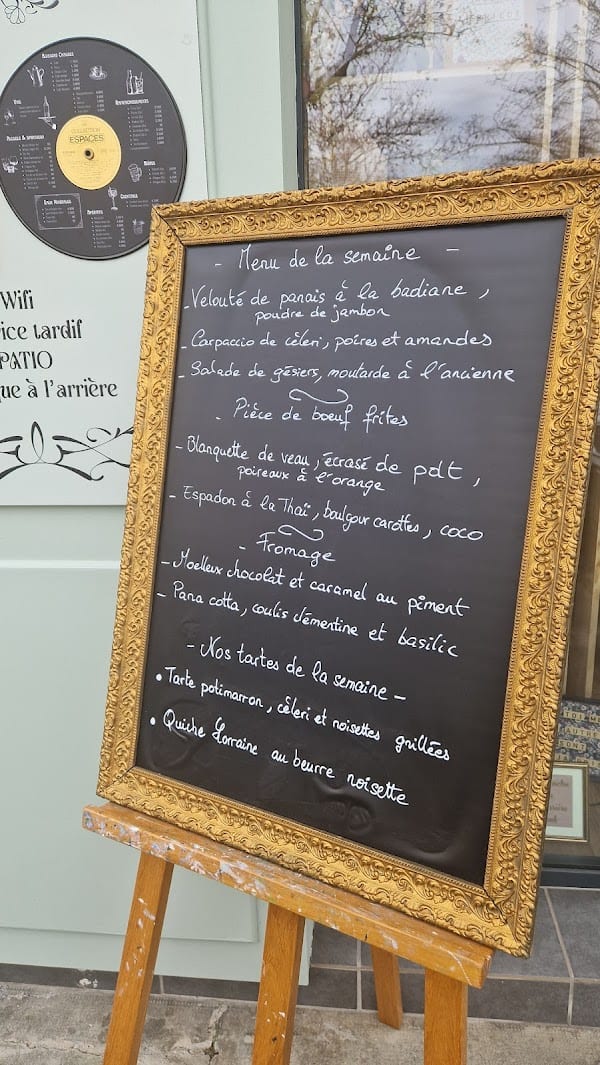 COLLECTION
ESPACES
Wifi
ice tardif
PATIO
ue à l'arrière
- Menu de la semaine -
- Velouté de panais à la badiane,
poudre de jambon
- Carpaccio de cèleri, poires et amandes
- Salade de gésiers, moutarde à l'ancienne
- Pièce de boeuf frites
- Blanquette de veau, écrasé de pdt,
poireaux à l'orange
- Espadon à la Thaï, boulgour carottes, coco
- Fromage
- Moelleux chocolat et caramel au piment
- Pana cotta, coulis clémentine et basilic
- Nos tartes de la semaine -
• Tarte potimarron, cèleri et noisettes grillées
• Quiche Lorraine au beurre noisette